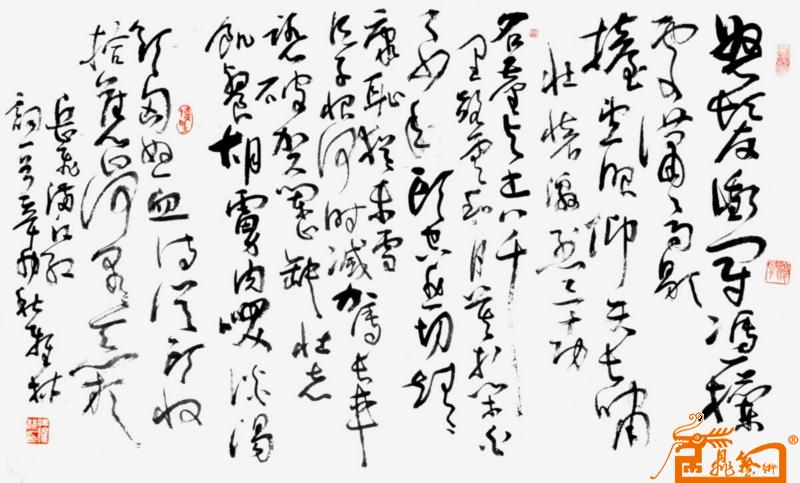 怒髮衝冠馮欄
處瀟瀟雨歇
擡望眼仰天長嘯
壯懷激烈三十功
名塵與土八千
里路雲和月莫等閒白
了少年頭空悲切靖
康恥猶未雪
臣子恨何時滅駕長車
踏破賀蘭山缺壯志
飢餐胡虜肉笑談渴
飲匈奴血待從頭收
拾舊山河朝天闕
岳飛滿江紅
詞一首辛卯秋